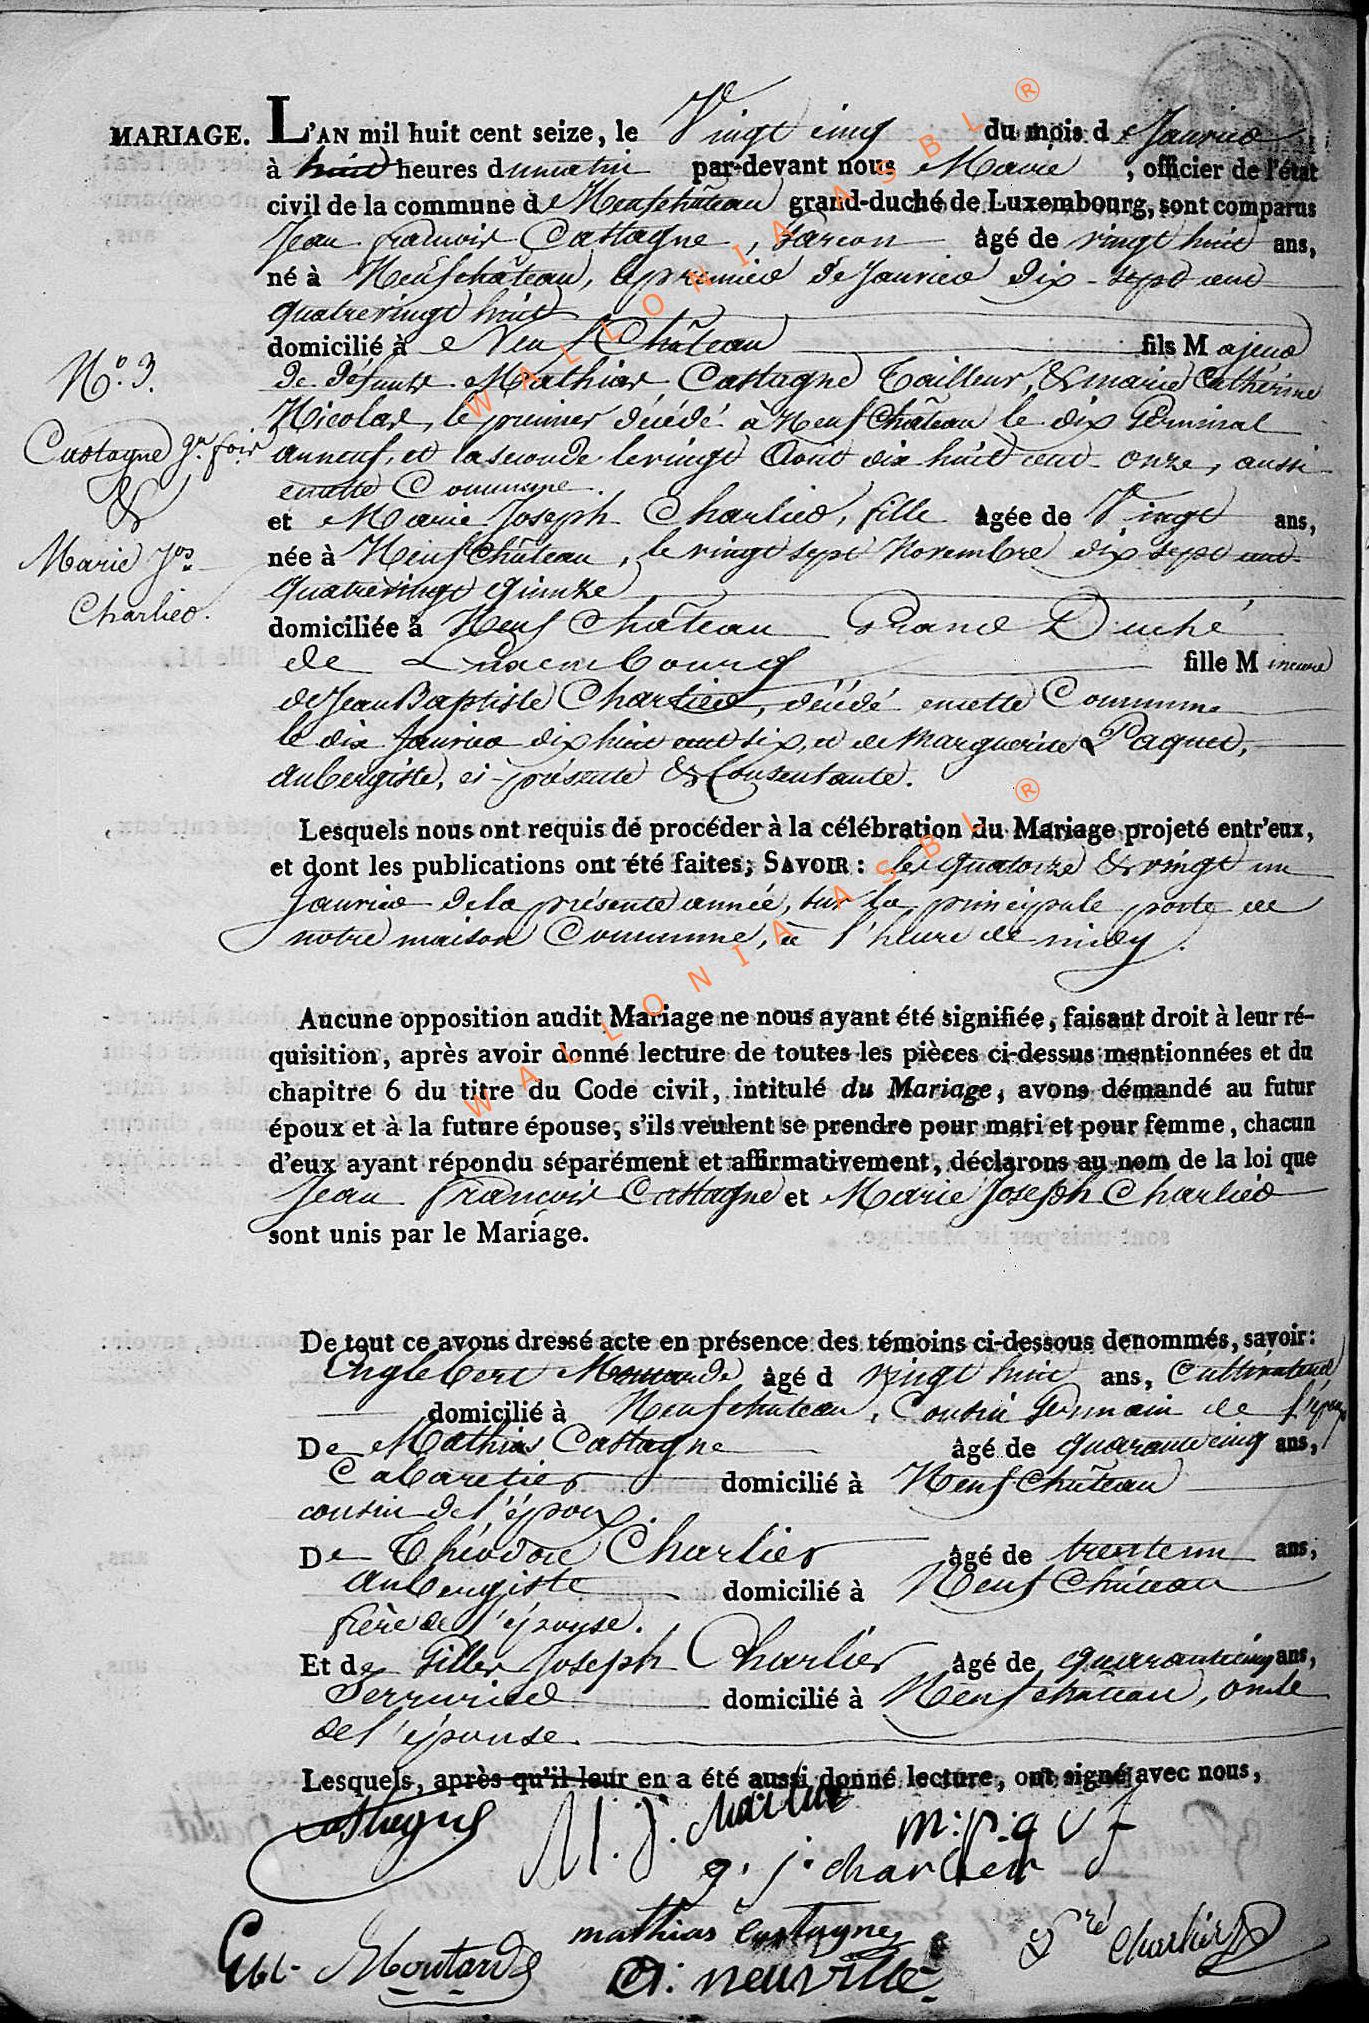 MARIAGE. L'AN mil huit cent seize, le Vingt cinq du mois de Janvier
à huit heures du matin par-devant nous Maire, officier de l'état
civil de la commune de Neufchâteau grand-duché de Luxembourg, sont comparus
Jean francois Castagne, Garcon âgé de vingt huit ans,
né à Neufchâteau, le premier de Janvier dix-sept cent
quatrevingt huit
domicilié à Neufchâteau fils Majeur
de défunts Mathias Castagne Tailleur, & marie Catherine
Nicolas, le premier décédé à Neufchâteau le dix Germinal
an neuf, et la seconde le vingt Aout dix huit cent onze, aussi
en cette Commune.
N.° 3.
Castagne Jn. fois
&
Marie Jos
Charlier.
et Marie Joseph Charlier, fille âgée de Vingt ans,
née à Neufchâteau, le vingt sept Novembre dix sept cent
quatrevingt quinze
domiciliée à Neufchâteau Grand Duché
de Luxembourg fille Mineure
de Jean Baptiste Charlier, décédé en cette Commune
le dix Janvier dix huit cent six, et de Marguerite Paquet,
aubergiste, ci-présente & Consentante.
Lesquels nous ont requis de procéder à la célébration du Mariage projeté entr'eux,
et dont les publications ont été faites; SAVOIR: les quatorze & vingt un
Janvier de la présente année, sur la principale porte de
notre maison Commune, à l'heure de midy.
Aucune opposition audit Mariage ne nous ayant été signifiée, faisant droit à leur ré-
quisition, après avoir donné lecture de toutes les pièces ci-dessus mentionnées et du
chapitre 6 du titre du Code civil, intitulé du Mariage, avons démandé au futur
époux et à la future épouse, s'ils veulent se prendre pour mari et pour femme, chacun
d'eux ayant répondu séparément et affirmativement, déclarons au nom de la loi que
Jean francois Castagne et Marie Joseph Charlier
sont unis par le Mariage.
De tout ce avons dressé acte en présence des témoins ci-dessous denommés, savoir:
Englebert âgé d vingt huit ans, Cultivateur
domicilié à Neufchâteau, Cousin Germain de l'époux
De Mathias Castagne âgé de quarante cinq ans,
Cabaretier domicilié à Neufchâteau
cousin de l'époux.
De Théodore Charlier âgé de trente un ans,
aubergiste domicilié à Neufchâteau
frère de l'épouse.
Et de Gilles Joseph Charlier âgé de quarante cinq ans,
Serrurier domicilié à Neufchateau, oncle
de l'épouse.
Lesquels, après qu'il leur en a été aussi donné lecture, ont signé avec nous,
Castagne M. J. charlier m: p: q
g. j. charlier
mathias Castagne
Engl. Moutarde neuville Dré Charlier
WALLONIA ASBL ®
WALLONIA ASBL ®